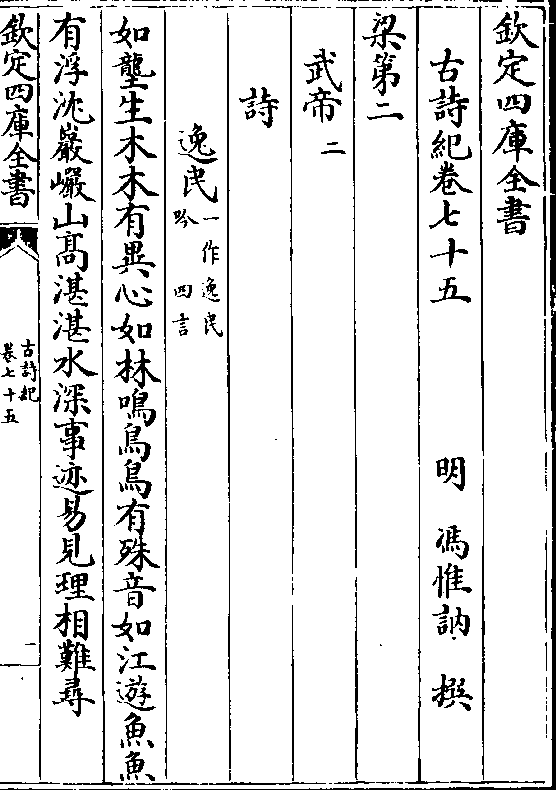 欽定四庫全書
古詩紀卷七十五　　明　馮惟訥　撰
梁第二
武帝二
詩
逸民一作逸民吟　四言
如壟生木木有異心如林鳴鳥鳥有殊音如江遊魚魚
有浮沈巖巖山髙湛湛水深事迹易見理相難尋
欽定四庫全書
古詩紀
卷七十五
一